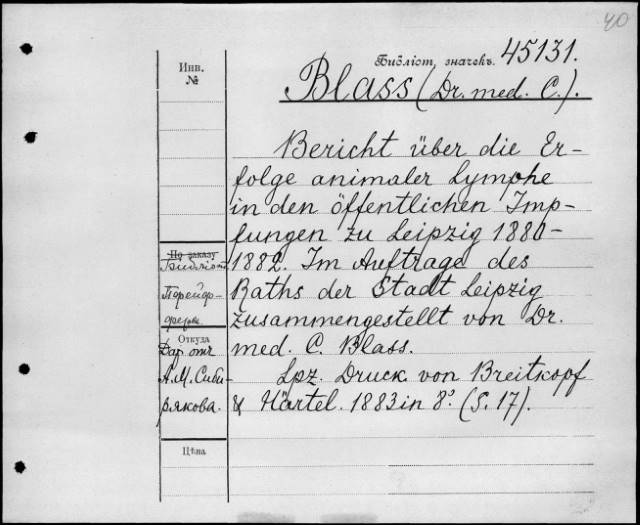 40
Библіот. значекъ. 45131.
Инв.
№
Blass (Dr. med. C.).
Bericht über die Er-
folge animaler Lymphe
in den öffentlichen Imp-
fungen zu Leipzig 1880-
1882. Im Auftrage des
Raths der Stadt Leipzig
zusammengestellt von Dr.
med. C. Blass.
Lpz. Druck von Breitkopf
& Härtel. 1883 in 8°. (S. 17).
По заказу
Библіот.
Откуда
Дар. отъ
А. М. Сиби-
рякова.
Цѣна